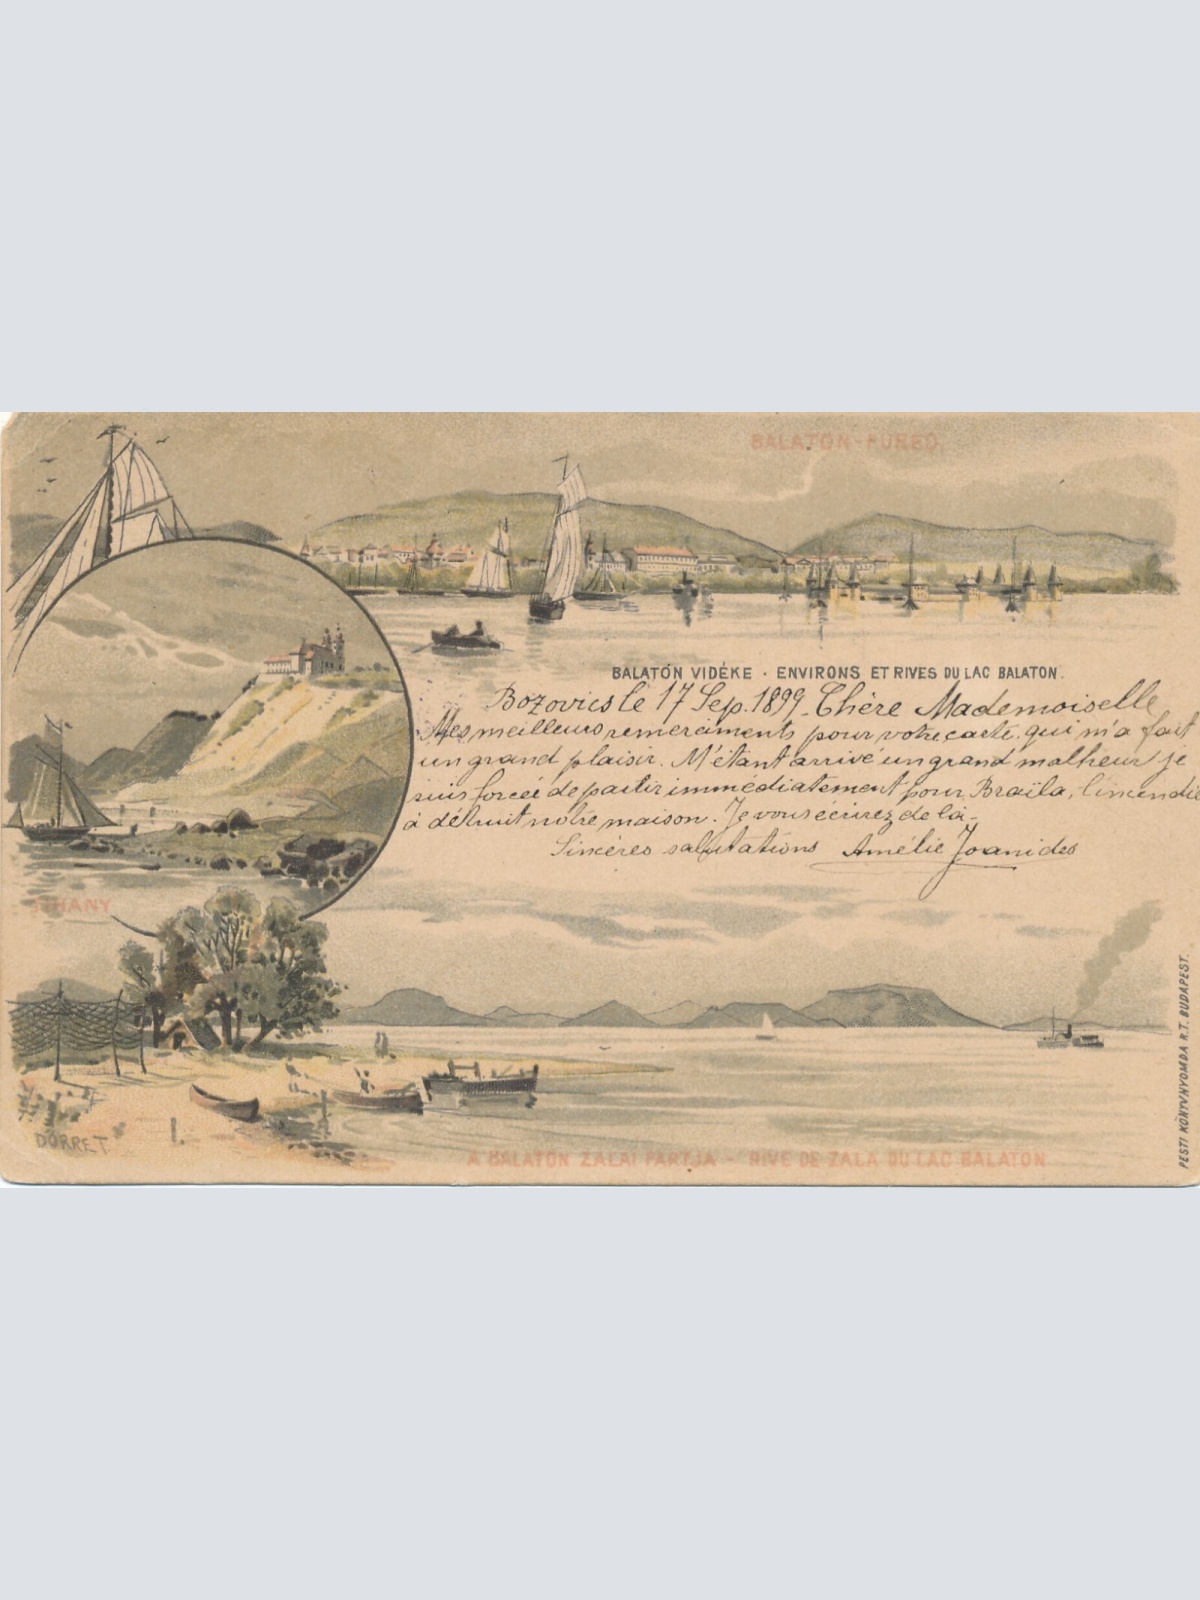 BALATON-FÜRED.
BALATON VIDÉKE · ENVIRONS ET RIVES DU LAC BALATON.
Bozovics le 17 Sep. 1899. Chère Mademoiselle
Mes meilleurs remerciments pour votre carte qui m'a fait
un grand plaisir. M'étant arrivé un grand malheur je
suis forcée de partir immédiatement pour Braïla, l'incendie
à détruit notre maison. Je vous écrirez de là.
Sincères salutations Amélie Joanides
TIHANY
DÖRRE T.
A BALATON ZALAI PARTJA - RIVE DE ZALA DU LAC BALATON
PESTI KÖNYVNYOMDA R.T. BUDAPEST.